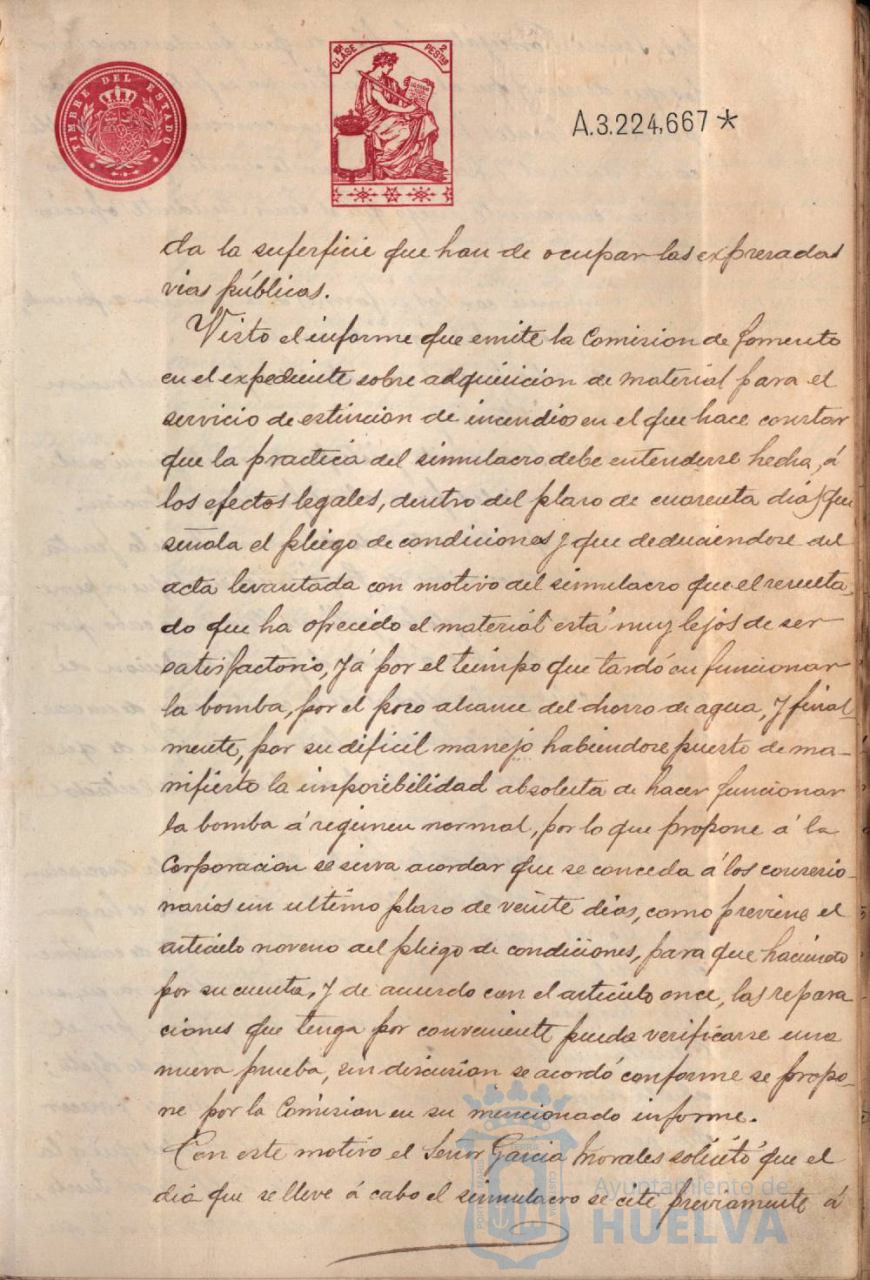 TIMBRE DEL ESTADO
CLASE 2 PESTAS
A.3.224,667*
da la superficie que han de ocupar las expresadas
vias públicas.
Visto el informe que emite la Comision de fomento
en el expediente sobre adquisición de material para el
servicio de estincion de incendios en el que hace constar
que la practica del simulacro debe entenderse hecha, á
los efectos legales, dentro del plazo de cuarenta dias que
señala el pliego de condiciones y que deduciendose del
acta levantada con motivo del simulacro que el resulta-
do que ha ofrecido el material está muy lejos de ser
satisfactorio, yá por el tiempo que tardó en funcionar
la bomba, por el poco alcance del chorro de agua, y final-
mente, por su dificil manejo habiendose puesto de ma-
nifiesto la imposibilidad absoluta de hacer funcionar
la bomba á regimen normal, por lo que propone á la
Corporacion se sirva acordar que se conceda á los concesio-
narios un ultimo plazo de veinte dias, como previene el
articulo noveno del pliego de condiciones, para que haciendo
por su cuenta, y de acuerdo con el articulo once, las repara
ciones que tenga por conveniente pueda verificarse una
nueva prueba, sin discusion se acordó conforme se propo-
ne por la Comision en su mencionado informe.
Con este motivo el Señor Garcia Morales solicitó que el
dia que se lleve á cabo el simulacro se cite previamente á
Ayuntamiento de
HUELVA